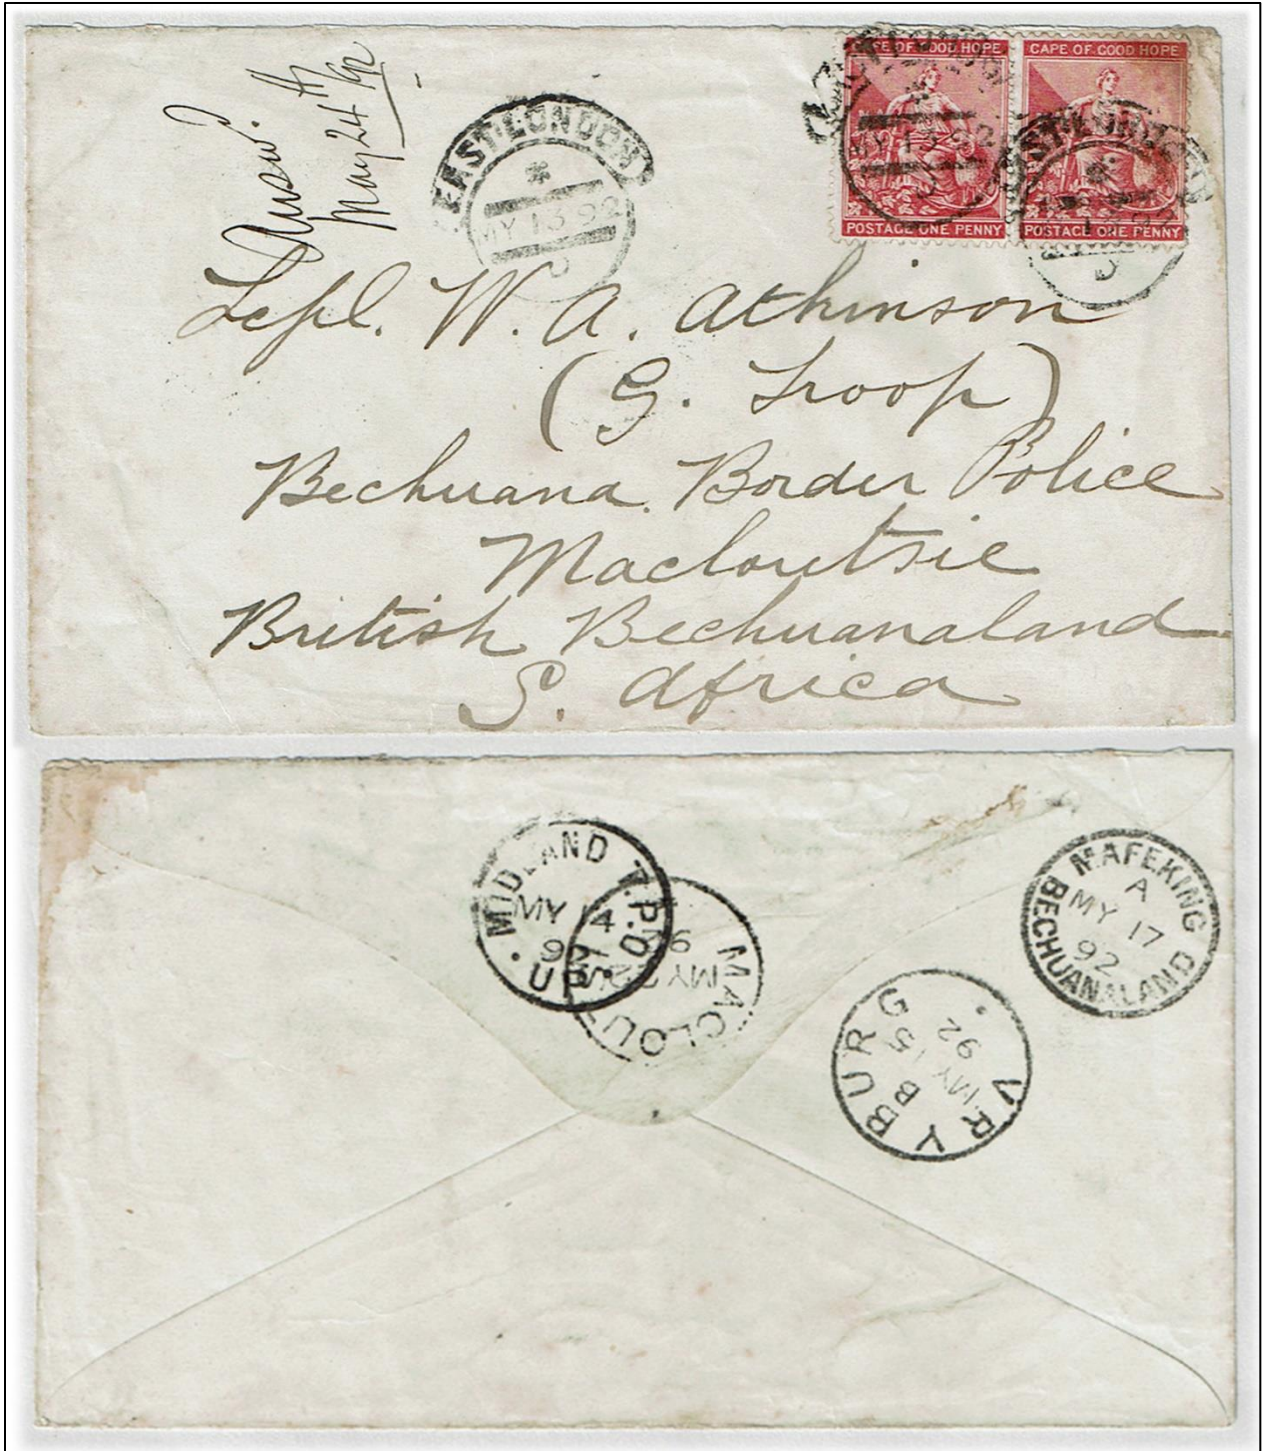 Answd.
May 24th /92
EAST LONDON
MY 13 92
CAPE OF GOOD HOPE
POSTAGE ONE PENNY
MY 13 92
CAPE OF GOOD HOPE
POSTAGE ONE PENNY
EAST LONDON
13 92
Lcpl. W. A. Atkinson
(G. Troop)
Bechuana. Border Police
Macloutsie
British Bechuanaland
S. Africa
MIDLAND T.P.O.
MY 14
92
UP
MACLOU
MY
MAFEKING
A
MY 17
92
BECHUANALAND
VRYBURG
B
MY 15
92